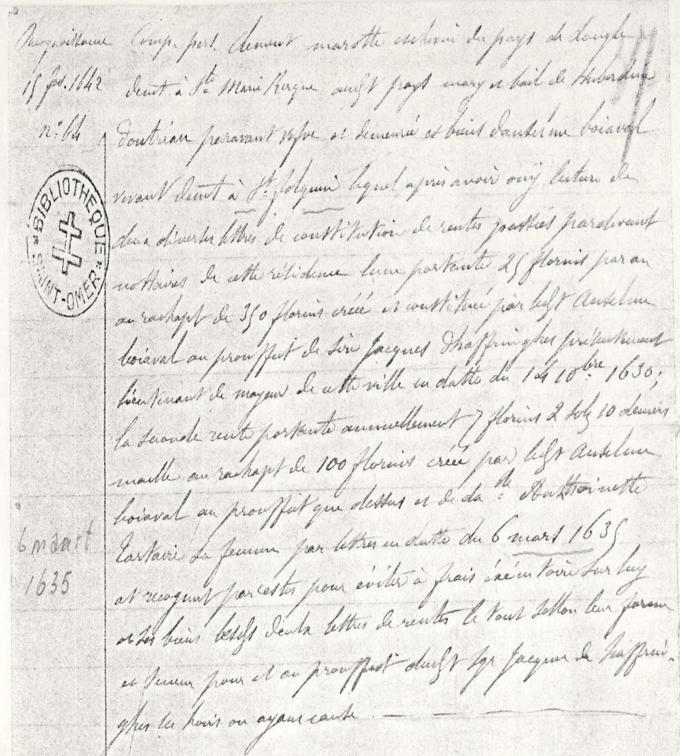 Recognoissance
15 fev. 1642
n° 64
BIBLIOTHEQUE
SAINT-OMER
6 mars
1635
Comp. pers. Clement marotte eschevin du pays de Langle
demt. à Ste Marie Kerque audt pays mary et bail de
paravant vefve et demeurée es biens d'anselme boiaval
vivant demt à St folquin lequel après avoir ouy lecture de
deux diverses lettres de constitution de rentes passées pardevant
nottaires de cette résidence lune portante 25 florins par an
au rachapt de 350 florins créée et constituée par ledt Anselme
boiaval au prouffit de sire Jacques d'haffringhes présentement
lieutenant de mayeur de cette ville en datte du 14 10bre 1630;
la seconde rente portante annuellement 7 florins 2 solz 10 deniers
maille au rachapt de 100 florins créée par ledt Anselme
boiaval au prouffit que dessus et de dalle Anthoinette
Tartaire sa femme par lettres en datte du 6 mars 1635
at recognut parcestes pour éviter à frais exécutoire sur luy
et ses biens lesdts deux lettres de rentes le tout sellon leur forme
et teneur pour et au prouffit dudt sgr Jacques de haffrin-
ghes ses hoirs ou ayans cause.